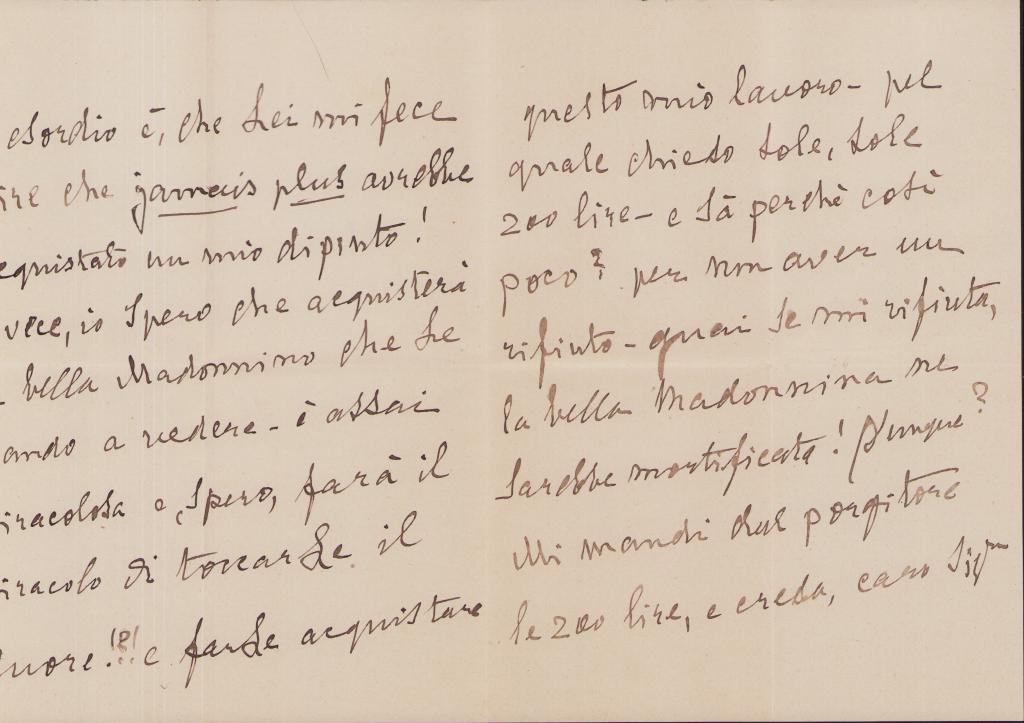 esordio è, che Lei mi fece
ire che jamais plus avrebbe
cquistato un mio dipinto!
vece, io spero che acquisterà
bella Madonnina che Le
ando a vedere - è assai
iracolosa e, spero, farà il
iracolo di toccarLe il
uore!?! e farLe acquistare
questo mio lavoro - pel
quale chiedo sole, sole
200 lire - e sà perchè così
poco? per non aver un
rifiuto - guai se mi rifiuta,
la bella Madonnina ne
sarebbe mortificata! Dunque?
Mi mandi dal porgitore
le 200 lire, e creda, caro Sigr